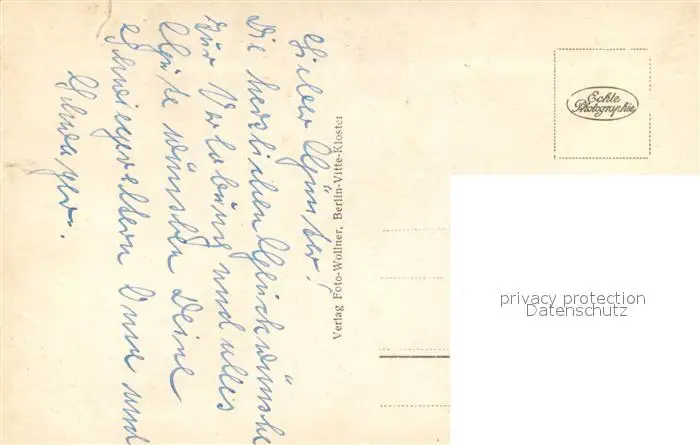 Lieber Günter!
Die herzlichen Glückwünsche
zur Verlobung und alles
Gute wünschen Deine
Schwiegereltern und
Schwager.
Verlag Foto-Wollner, Berlin-Vitte-Kloster
Echte
Photographie
privacy protection
Datenschutz